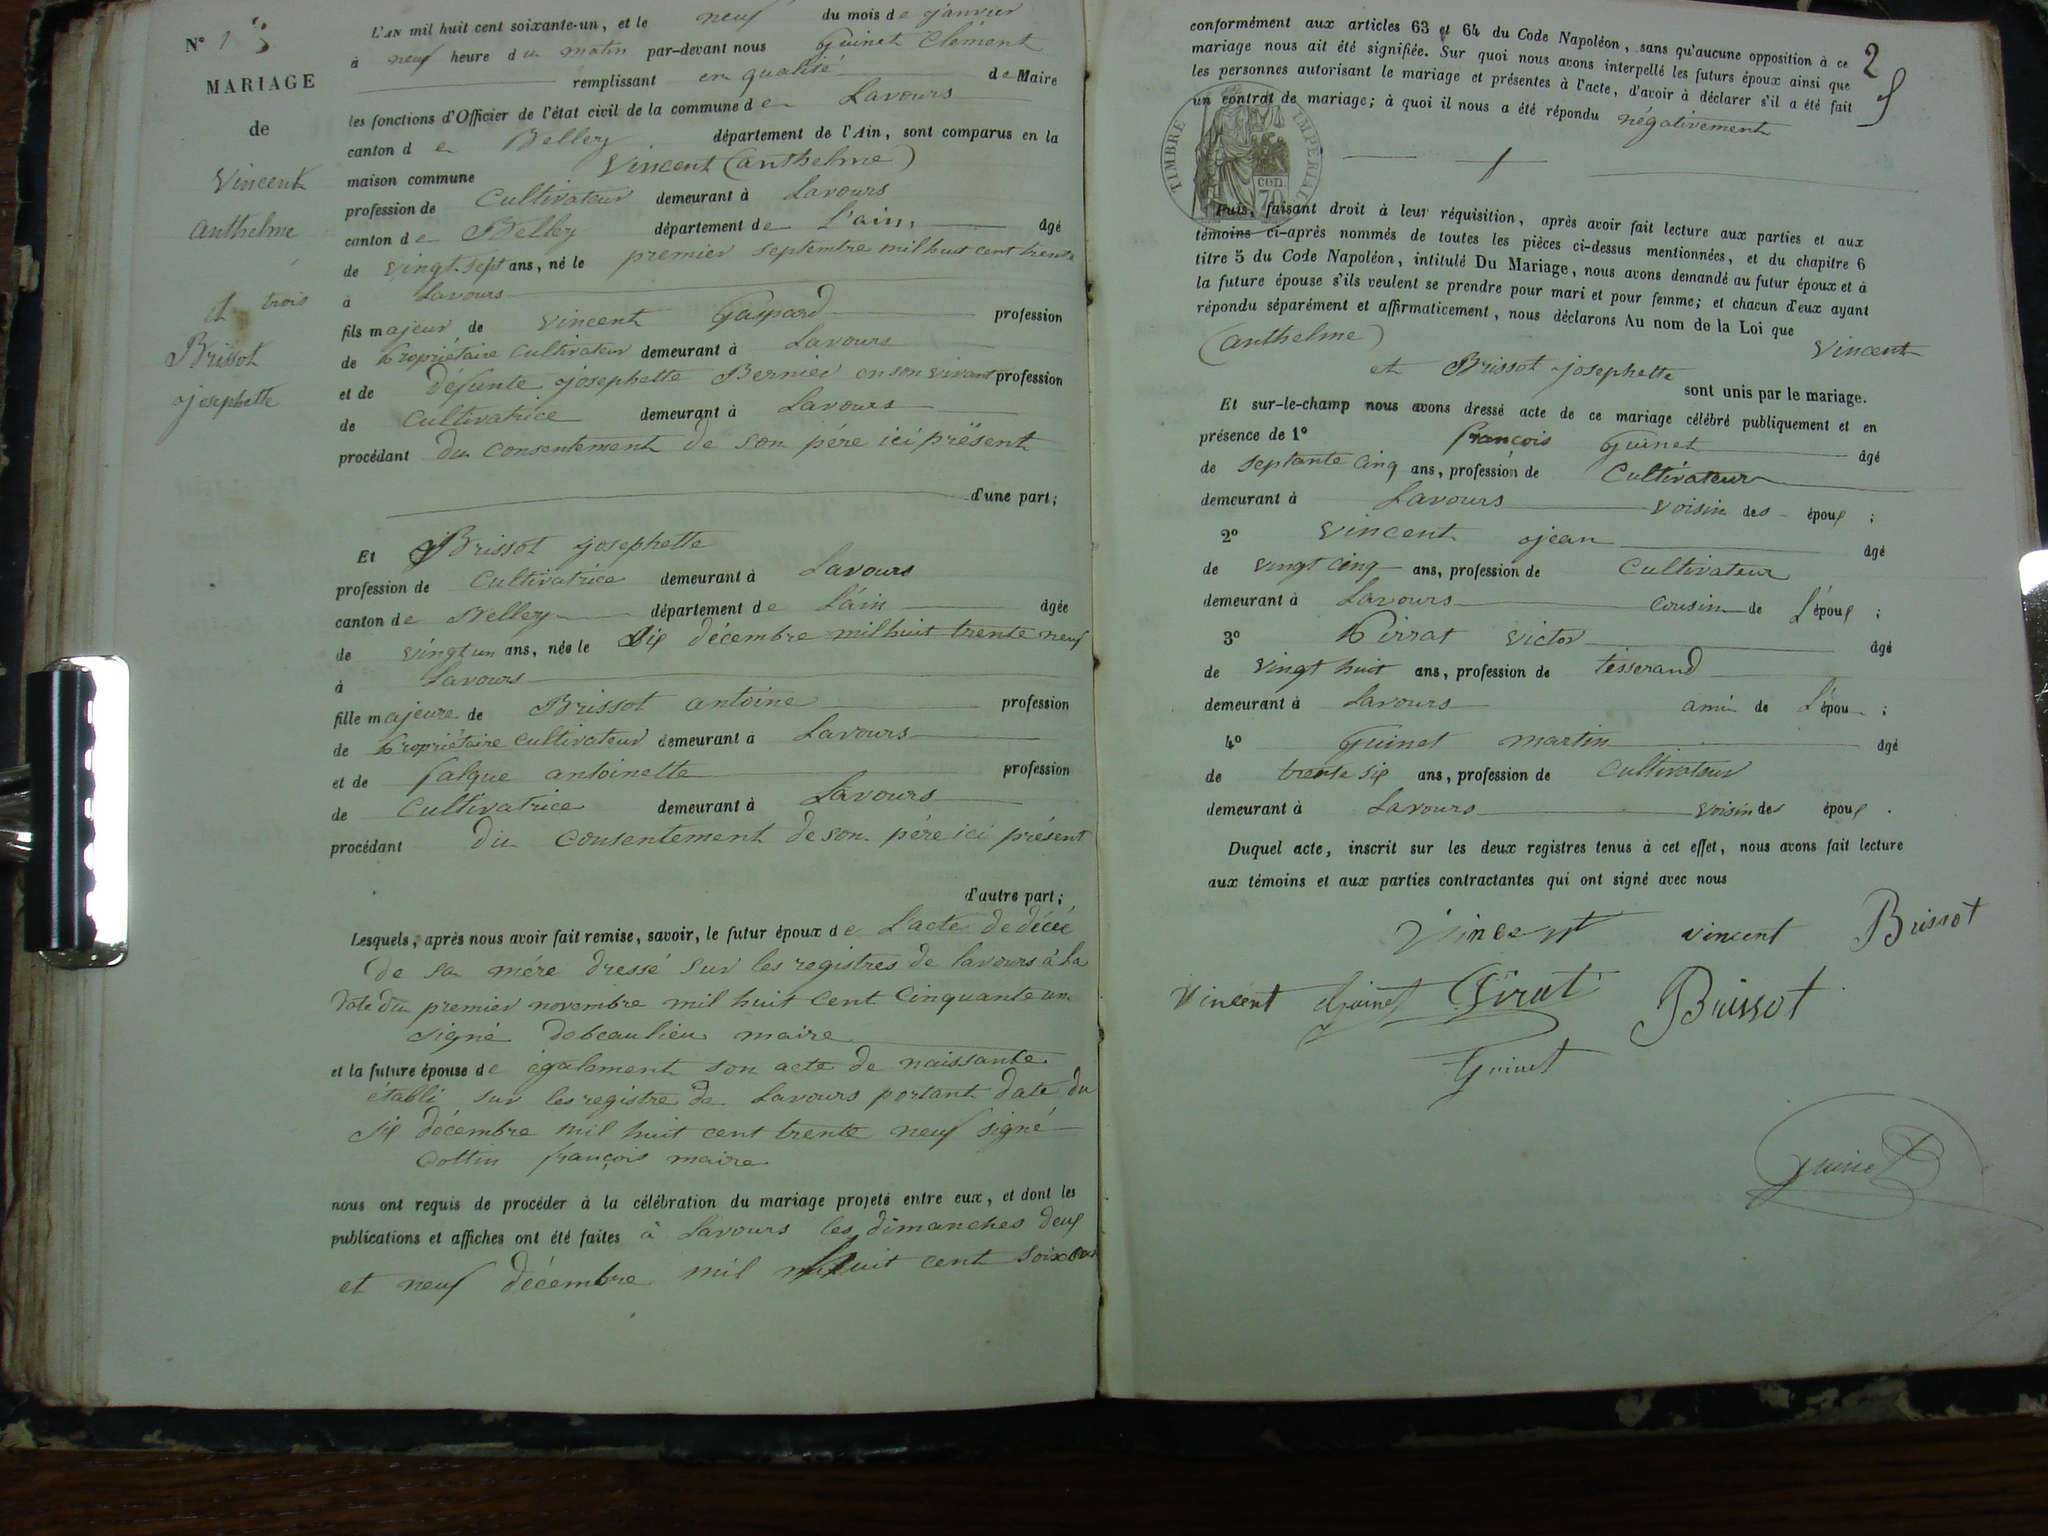 N° 1
MARIAGE
de
Vincent
anthelme
et trois
Brissot
josephette
L'AN mil huit cent soixante-un, et le neuf du mois de janvier
à neuf heure du matin par-devant nous Guinet Clément
remplissant en qualité de Maire
les fonctions d'Officier de l'état civil de la commune de Lavours
canton de Belley département de l'Ain, sont comparus en la
maison commune Vincent (anthelme)
profession de Cultivateur demeurant à Lavours
canton de Belley département de L'ain, âgé
de vingt-sept ans, né le premier septembre mil huit cent trente
à Lavours
fils majeur de Vincent Gaspard profession
de Propriétaire Cultivateur demeurant à Lavours
et de défunte josephette Bernier en son vivant profession
de Cultivatrice demeurant à Lavours
procédant du consentement de son père ici présent
d'une part;
Et Brissot josephette
profession de Cultivatrice demeurant à Lavours
canton de Belley département de L'ain âgée
de vingt un ans, née le six décembre mil huit trente neuf
à Lavours
fille majeure de Brissot antoine profession
de Propriétaire Cultivateur demeurant à Lavours
et de falque antoinette profession
de Cultivatrice demeurant à Lavours
procédant du consentement de son père ici présent
d'autre part;
Lesquels, après nous avoir fait remise, savoir, le futur époux de L'acte de décé
de sa mére dressé sur les registres de lavours à la
date du premier novembre mil huit cent cinquante un
signé debeaulieu maire
et la future épouse de également son acte de naissante
établi sur les registre de Lavours portant date du
six décembre mil huit cent trente neuf signé
Cottin françois maire
nous ont requis de procéder à la célébration du mariage projeté entre eux, et dont les
publications et affiches ont été faites à Lavours les dimanches deux
et neuf décembre mil huit cent soixan
conformément aux articles 63 et 64 du Code Napoléon, sans qu'aucune opposition à ce
mariage nous ait été signifiée. Sur quoi nous avons interpellé les futurs époux ainsi que
les personnes autorisant le mariage et présentes à l'acte, d'avoir à déclarer s'il a été fait
un contrat de mariage; à quoi il nous a été répondu négativement
2
TIMBRE IMPERIAL
CEN. 70
Puis, faisant droit à leur réquisition, après avoir fait lecture aux parties et aux
témoins ci-après nommés de toutes les pièces ci-dessus mentionnées, et du chapitre 6
titre 5 du Code Napoléon, intitulé Du Mariage, nous avons demandé au futur époux et à
la future épouse s'ils veulent se prendre pour mari et pour femme; et chacun d'eux ayant
répondu séparément et affirmaticement, nous déclarons Au nom de la Loi que Vincent
(anthelme)
et Brissot josephette sont unis par le mariage.
Et sur-le-champ nous avons dressé acte de ce mariage célébré publiquement et en
présence de 1° françois Guinet âgé
de septante cinq ans, profession de Cultivateur
demeurant à Lavours voisin des époux ;
2° Vincent jean âgé
de vingt cinq ans, profession de Cultivateur
demeurant à Lavours cousin de L'époux ;
3° Pirrat victor âgé
de vingt huit ans, profession de tisserand
demeurant à Lavours ami de L'épou ;
4° Guinet martin âgé
de trente six ans, profession de Cultivateur
demeurant à Lavours voisin des époux .
Duquel acte, inscrit sur les deux registres tenus à cet effet, nous avons fait lecture
aux témoins et aux parties contractantes qui ont signé avec nous
Vincent vincent Brissot
Vincent Guinet Pirat Brissot
Guinet
Guinet